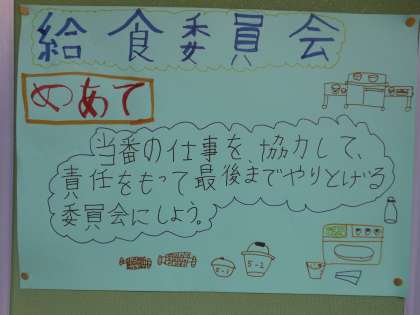 給食委員会
めあて
当番の仕事を、協力して、
責任をもって最後までやりとげる
委員会にしよう。
5-1
5-2